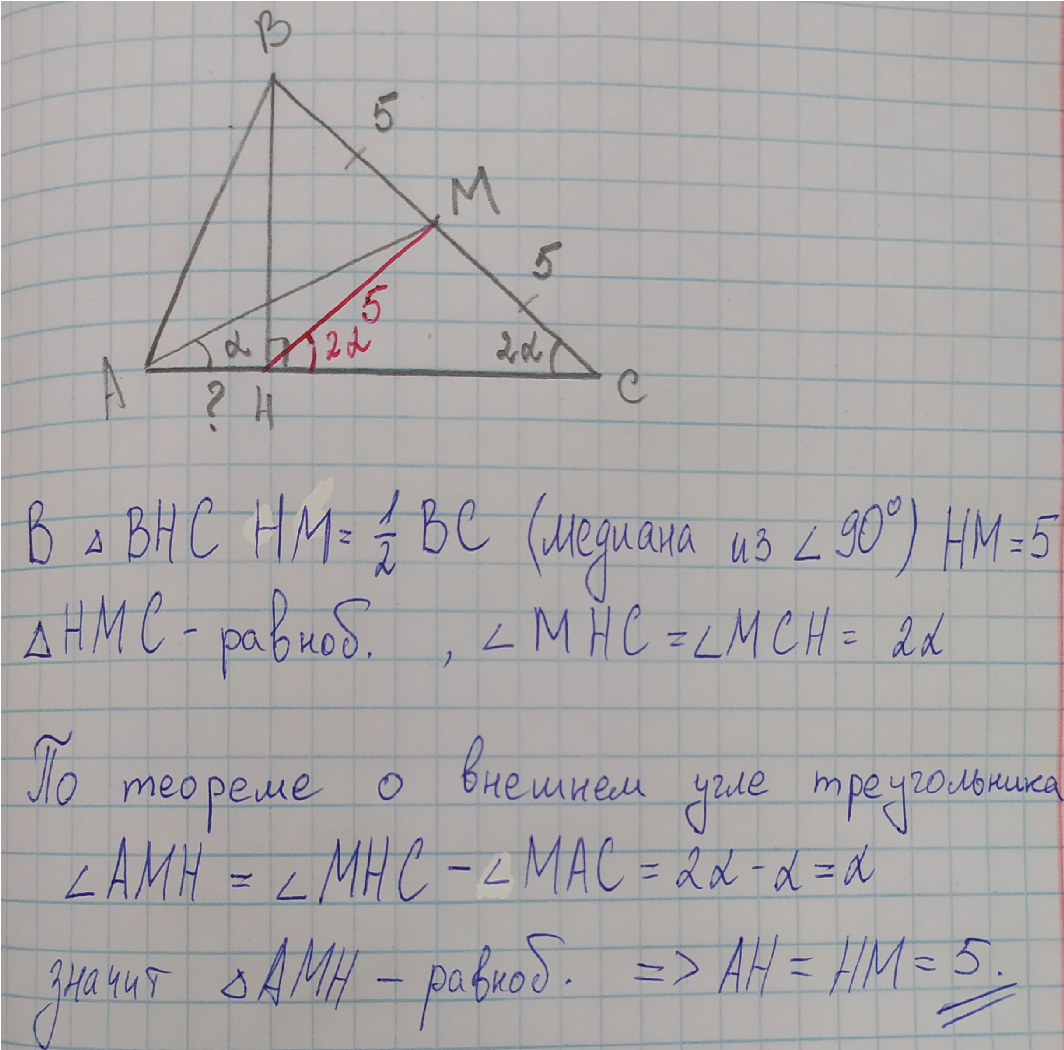 B
5
M
5
5
α
2α
2α
A
?
H
C
В △ BHC HM = 1/2 BC (медиана из ∠ 90°) HM = 5
△ HMC - равноб. , ∠ MHC = ∠ MCH = 2α
По теореме о внешнем угле треугольника
∠ AMH = ∠ MHC - ∠ MAC = 2α - α = α
значит △ AMH - равноб. => AH = HM = 5.